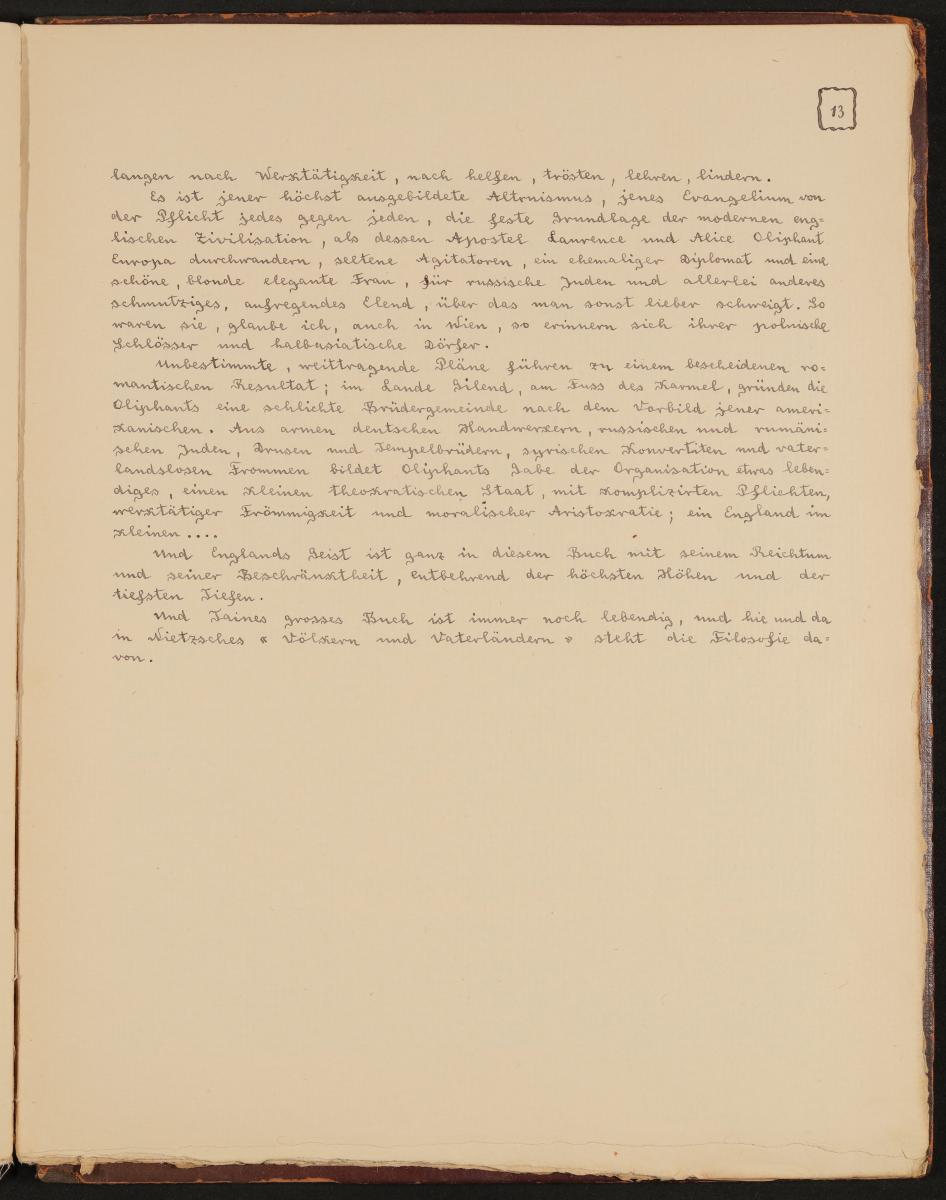 13
langen nach Werktätigkeit, nach helfen, trösten, lehren, lindern.
Es ist jener höchst ausgebildete Altruismus, jenes Evangelium von
der Pflicht jedes gegen jeden, die feste Grundlage der modernen eng=
lischen Zivilisation, als dessen Apostel Laurence und Alice Oliphant
Europa durchwandern, seltene Agitatoren, ein ehemaliger Diplomat und eine
schöne, blonde elegante Frau, für russische Juden und allerlei anderes
schmutziges, aufregendes Elend, über das man sonst lieber schweigt. So
waren sie, glaube ich, auch in Wien, so erinnern sich ihrer polnische
Schlösser und halbasiatische Dörfer.
Unbestimmte, weittragende Pläne führen zu einem bescheidenen ro=
mantischen Resultat; im Lande Gilead, am Fuss des Karmel, gründen die
Oliphants eine schlichte Brüdergemeinde nach dem Vorbild jener ameri=
kanischen. Aus armen deutschen Handwerkern, russischen und rumäni=
schen Juden, Drusen und Tempelbrüdern, syrischen Konvertiten und vater=
landslosen Frommen bildet Oliphants Gabe der Organisation etwas leben=
diges, einen kleinen theokratischen Staat, mit komplizirten Pflichten,
werktätiger Frömmigkeit und moralischer Aristokratie; ein England im
kleinen ....
Und Englands Geist ist ganz in diesem Buch mit seinem Reichtum
und seiner Beschränktheit, entbehrend der höchsten Höhen und der
tiefsten Tiefen.
Und Taines grosses Buch ist immer noch lebendig, und hie und da
in Nietzsches « Völkern und Vaterländern » steht die Filosofie da=
von.